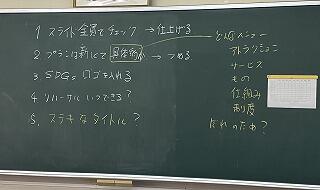 1 スライド全員でチェック → 仕上げる
2 プランは新ピで 具体的か → つめる
3 SDGs ロゴを入れる
4 リハーサル いつできる?
5. ステキなタイトルに?
どんなメニュー
アトラクション
サービス
もの
仕組み
制度
だれのため?